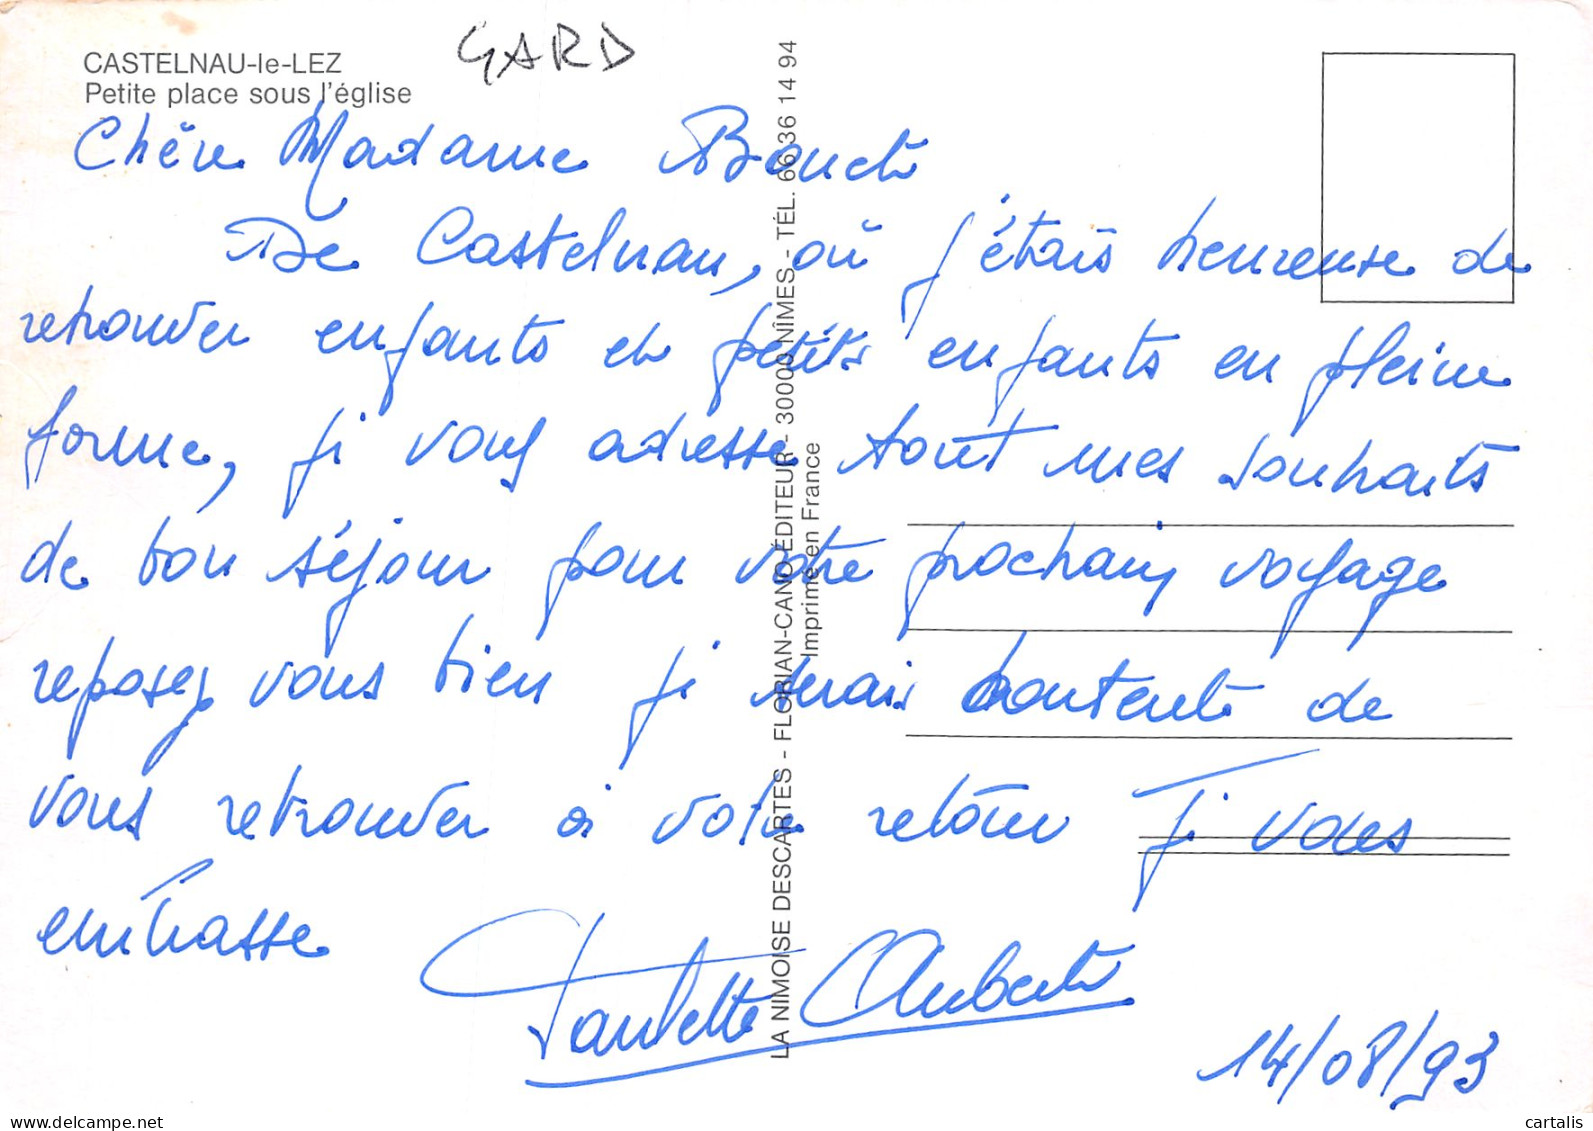 CASTELNAU-le-LEZ
Petite place sous l'église
GARD
Chère Madame
De Castelnau, où j'étais heureuse de
retrouver enfants et petits enfants en pleine
forme, je vous adresse tout mes souhaits
de bon séjour pour votre prochain voyage
reposez vous bien je serais contente de
vous retrouver à votre retour Je vous
embrasse
Paulette Aubert
14/08/93
LA NIMOISE DESCARTES - FLORIAN-CANO-ÉDITEUR - 30000 NÎMES - TÉL. 66 36 14 94
Imprimé en France
www.delcampe.net
cartalis